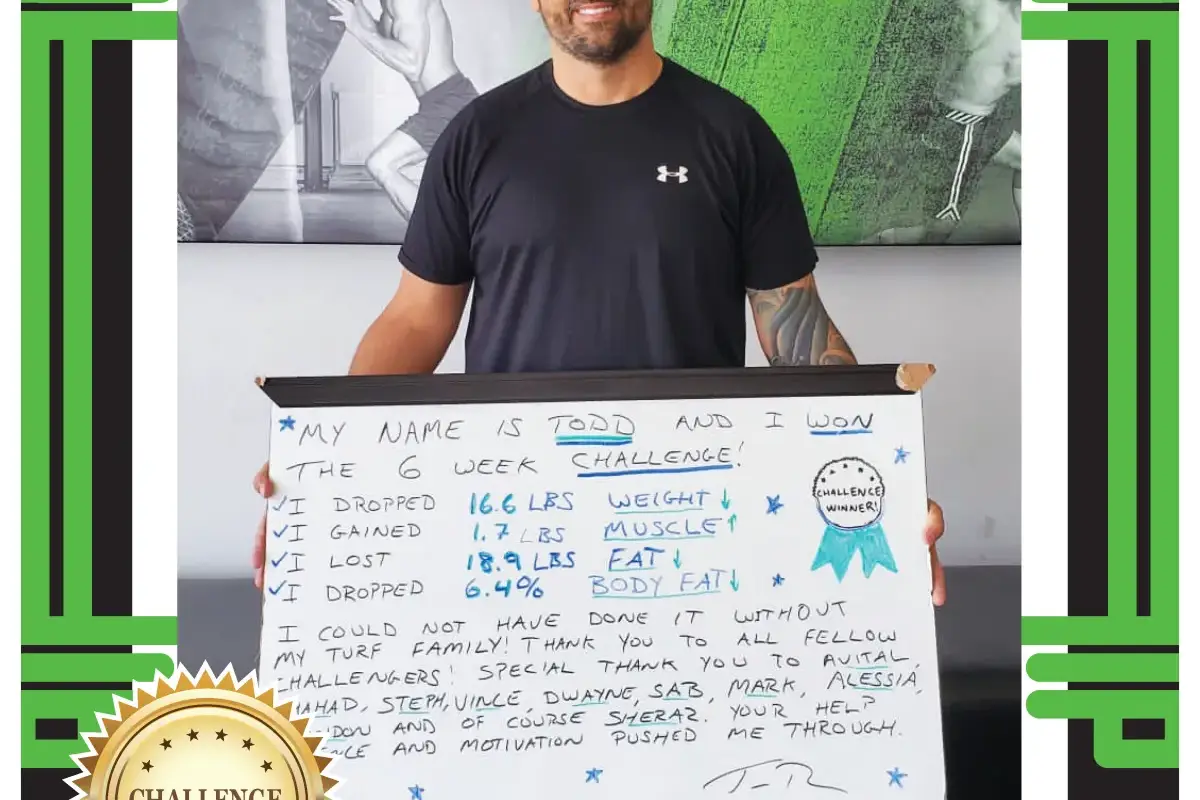 MY NAME IS TODD AND I WON
THE 6 WEEK CHALLENGE!
I DROPPED 16.6 LBS WEIGHT ↓
I GAINED 1.7 LBS MUSCLE ↑
I LOST 18.9 LBS FAT ↓
I DROPPED 6.4% BODY FAT ↓
CHALLENGE
WINNER!
I COULD NOT HAVE DONE IT WITHOUT
MY TURF FAMILY! THANK YOU TO ALL FELLOW
CHALLENGERS! SPECIAL THANK YOU TO AVITAL,
STEPH, VINCE, DWAYNE, SAB, MARK, ALESSIA,
AND OF COURSE SHERAZ. YOUR HELP
AND MOTIVATION PUSHED ME THROUGH.
CHALLENGE